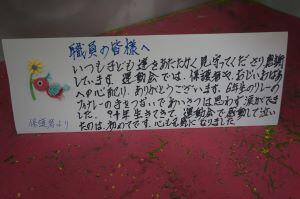 職員の皆様へ
いつも子ども達をあたたかく見守ってくださり感謝
しています。運動会では、保護者や、おじいおばあ
への心配り、ありがとうございます。6年生のリレーの
アンカーの手をつないであいさつは思わず涙がでま
した。94年生きてきて、運動会で感動して泣い
たのは初めてです。心も豊になりました
保護者より